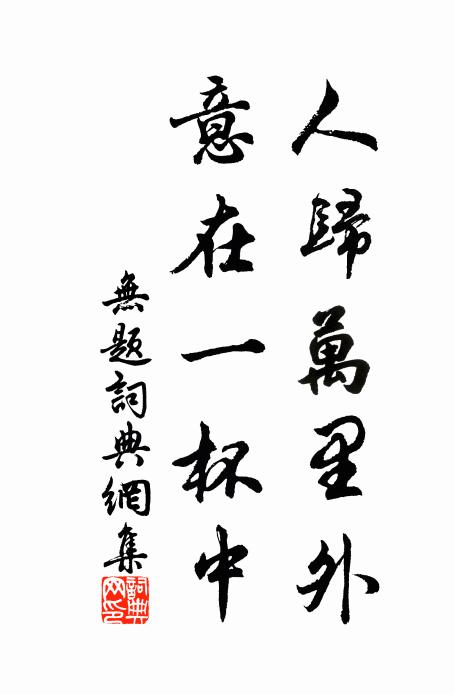 人歸萬里外
意在一杯中
無題詞典網集
詞典
网印